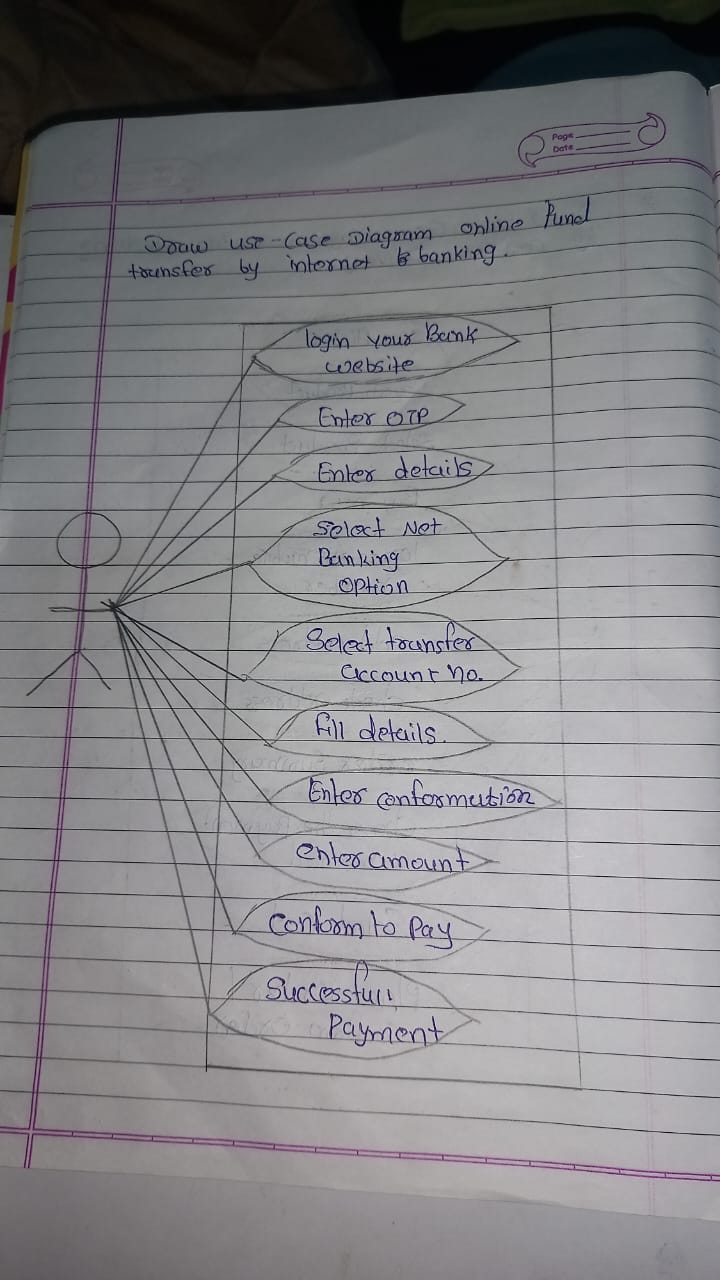 Page
Date
Draw use-case Diagram online Fund
transfer by internet banking.
login your Bank
website
Enter OTP
Enter details
Select Net
Banking
Option
Select transfer
account no.
fill details.
Enter conformation
enter amount
Conform to Pay
Successfull
Payment